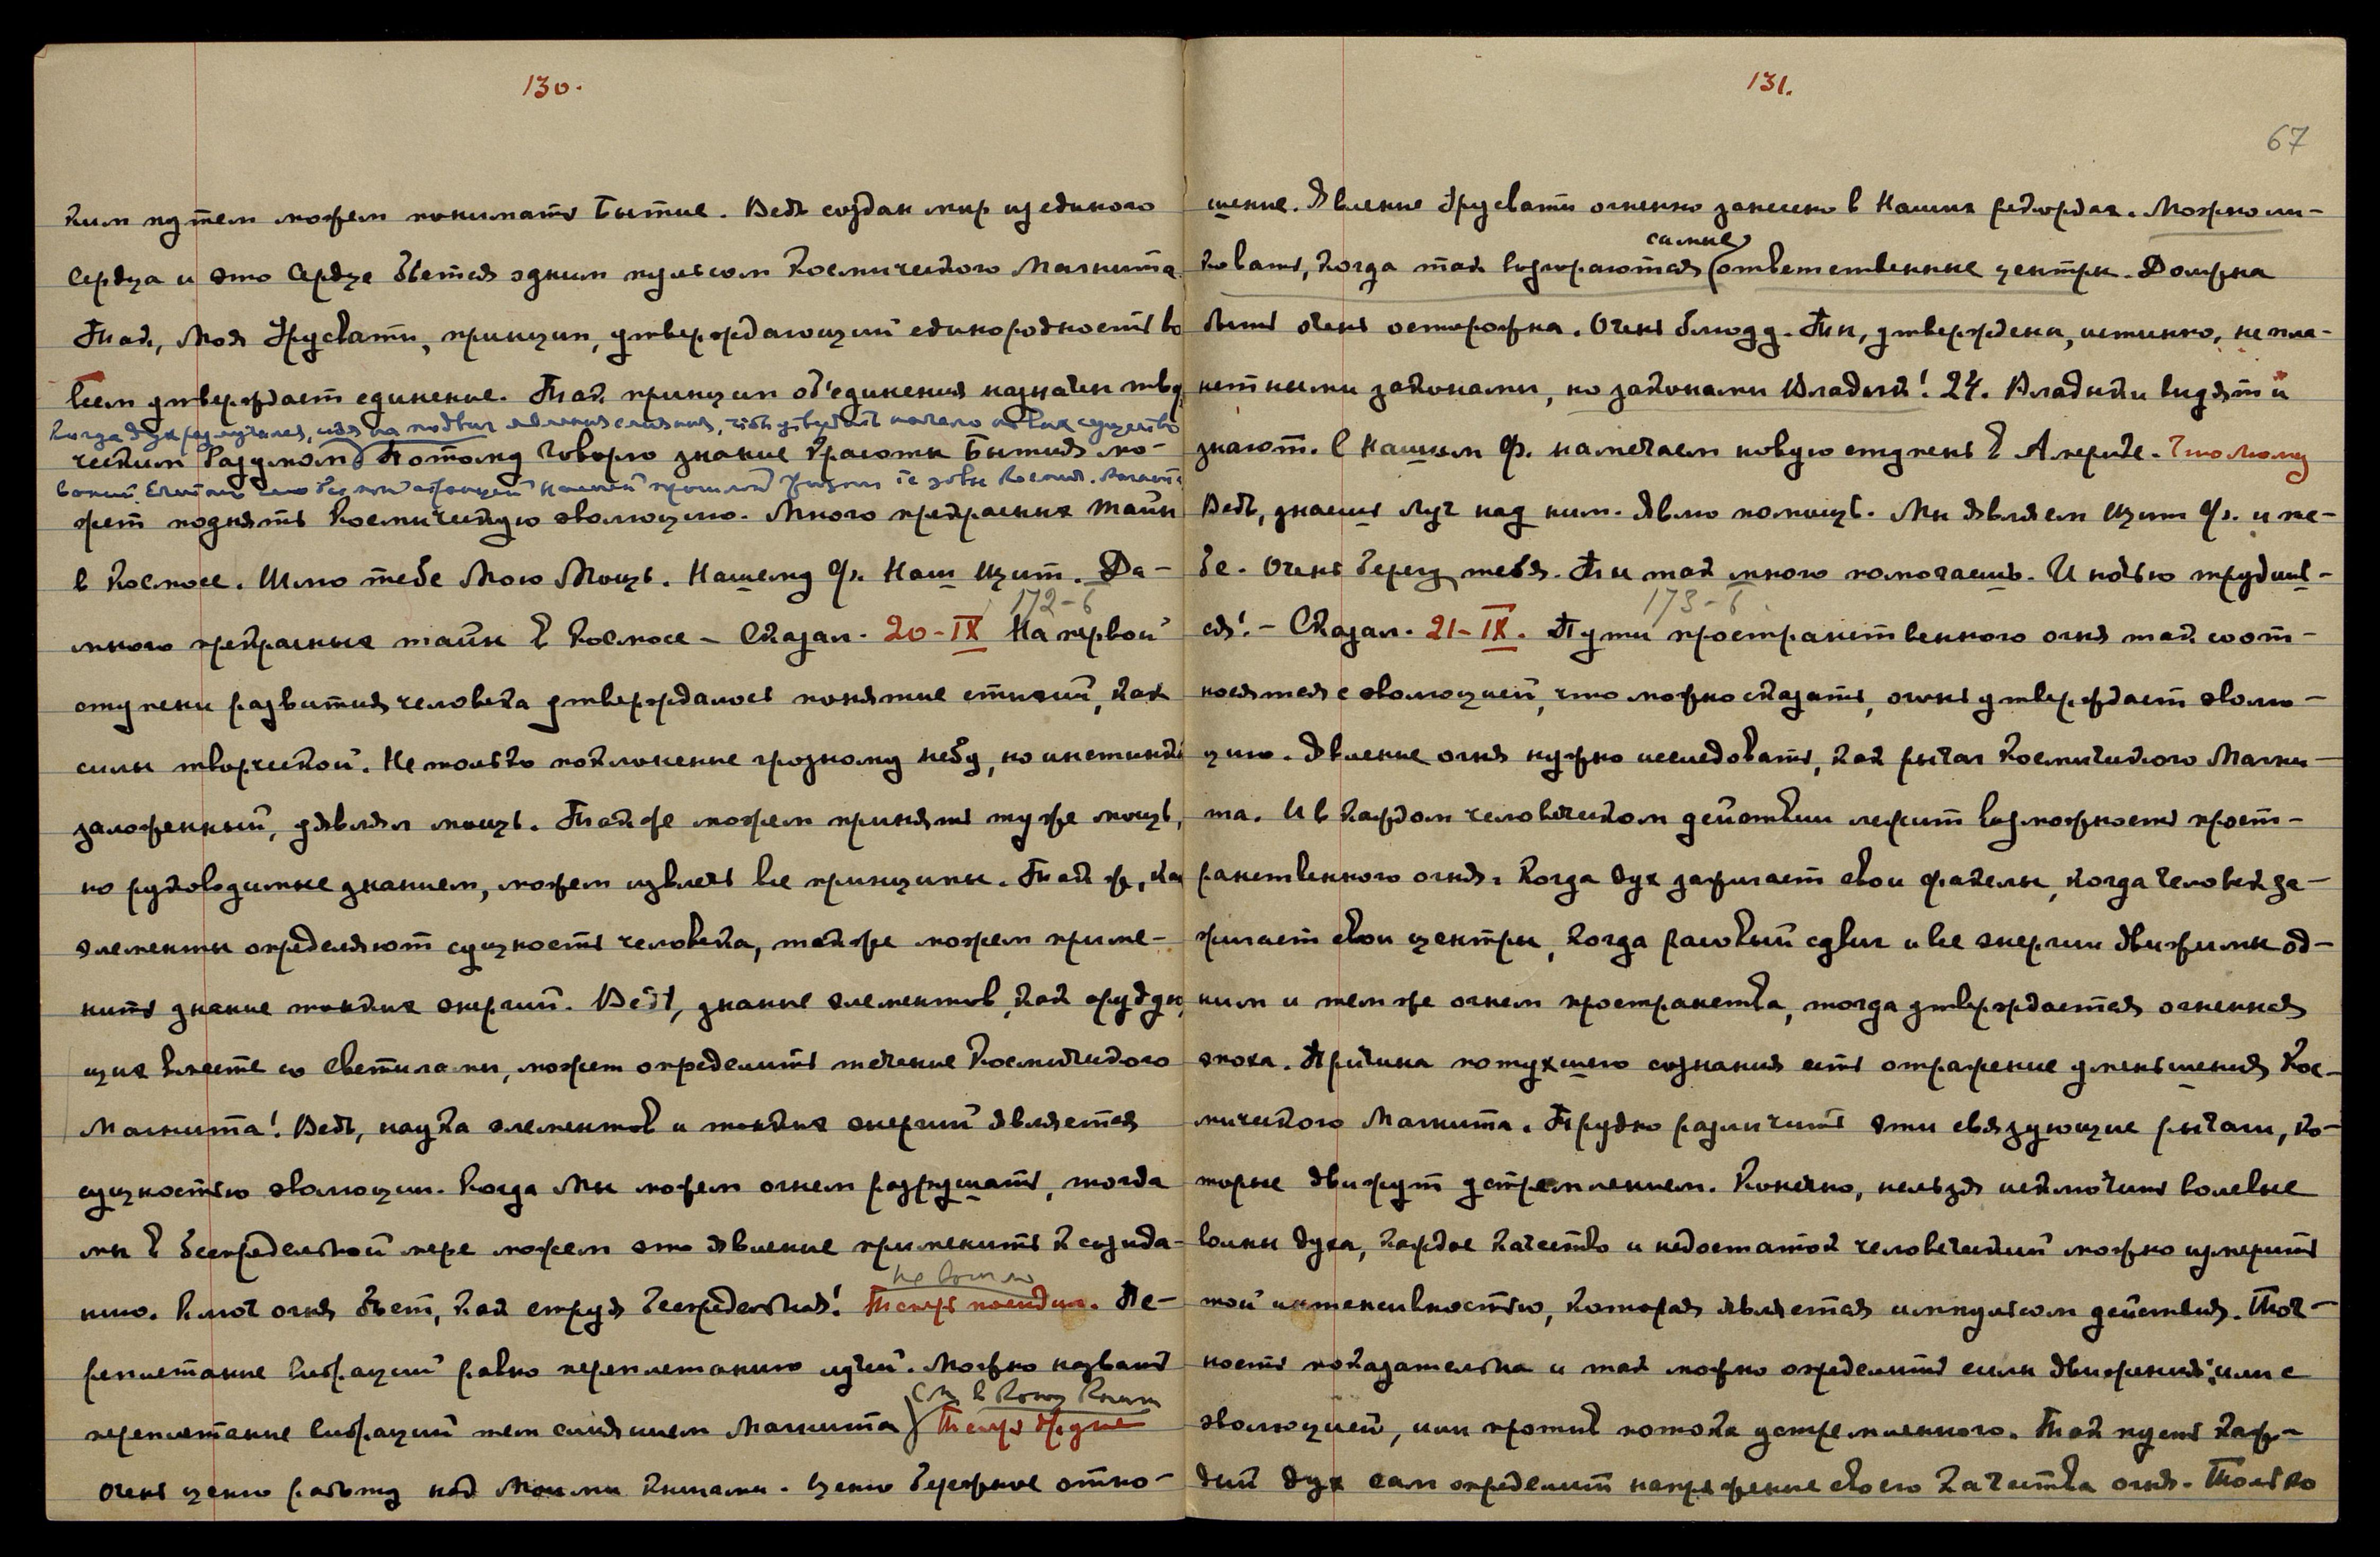 130.
ким путем можем понимать Бытие. Ведь создан мир из единого
Сердца и это Сердце бьется одним пульсом Космического Магнита.
Так, Моя Урусвати, принцип, утверждающий единородность во
всем утверждает единение. Так принцип об'единения назначен твор
Когда дух разлучался, идя на подвиг явления слияния, чтоб утвердить начало новых существо
ческим Разумом. Потому говорю знание Красоты Бытия мо-
ваний.
жет поднять Космическую эволюцию. Много прекрасных тайн
в Космосе. Шлю тебе Мою Мощь. Нашему Ф. Наш Щит. Да-
172-6
много прекрасных тайн в Космосе – Сказал. 20-IX На первой
ступени развития человека утверждалось понятие стихий, как
силы творческой. Не только поклонение грозному небу, но инстинкт
заложенный, являл мощь. Так же можем принять ту же мощь,
но руководимые знанием, можем извлечь все принципы. Так ж, как
элементы определяют сущность человека, так же можем приме-
нить знание тонких энергий. Ведь, знание элементов, как орудую
щих вместе со светилами, может определить течение Космического
Магнита! Ведь, наука элементов и тонких энергий является
сущностью эволюции. Когда мы можем огнем разрушать, тогда
мы в беспредельной мере можем это явление применить к созида-
не вошло
нию. Ключ огня бьет, как струя беспредельная! Теперь поендин. Пе-
реплетание вибраций равно переплетанию лучей. Можно назвать
См в Конц Книги
переплетание вибраций тем слиянием Магнита) Теперь другие
Очень ценю работу над Моими Книгами. Ценю бережное отно-
131.
67
шение. Явление Урусвати огненно занесено в Наших рекордах. Можно ли-
самые
ковать, когда так возгораются (ответственные центры. Должна
быть очень осторожна. Очень блюду. Ты, утверждена, истинно, не пла-
нетными законами, но законами Владык! 24. Владыки видят и
знают. С Нашим Ф. намечаем новую ступень в Америке. Что Моему
Ведь, знаешь луч над ним. Явлю помощь. Мы являем Щит Ф. и те-
бе. Очень берегу тебя. Ты так много помогаешь. И ночью трудишь-
173-6
ся! – Сказал. 21-IX. Пути пространственного огня так соот-
носятся с эволюцией, что можно сказать, огонь утверждает эволю-
цию. Явление огня нужно исследовать, как рычаг Космического Магни-
та. И в каждом человеческом действии лежит возможность прост-
ранственного огня. Когда дух зажигает свои факелы, когда человек за-
жигает свои центры, когда расовый сдвиг и все энергии движимы од-
ним и тем же огнем пространства, тогда утверждается огненная
эпоха. Причина потухшего сознания есть отражение уменьшения Кос-
мического Магнита. Трудно различить эти связующие рычаги, ко-
торые движут устремлением. Конечно, нельзя исключить волевые
волны духа, каждое качество и недостаток человеческий можно измерить
той интенсивностью, которая является импульсом действия. Точ-
ность показательна и так можно определить силы движения: или с
эволюцией, или против потока устремленного. Так пусть каж-
дый дух сам определит напряжение своего качества огня. Только